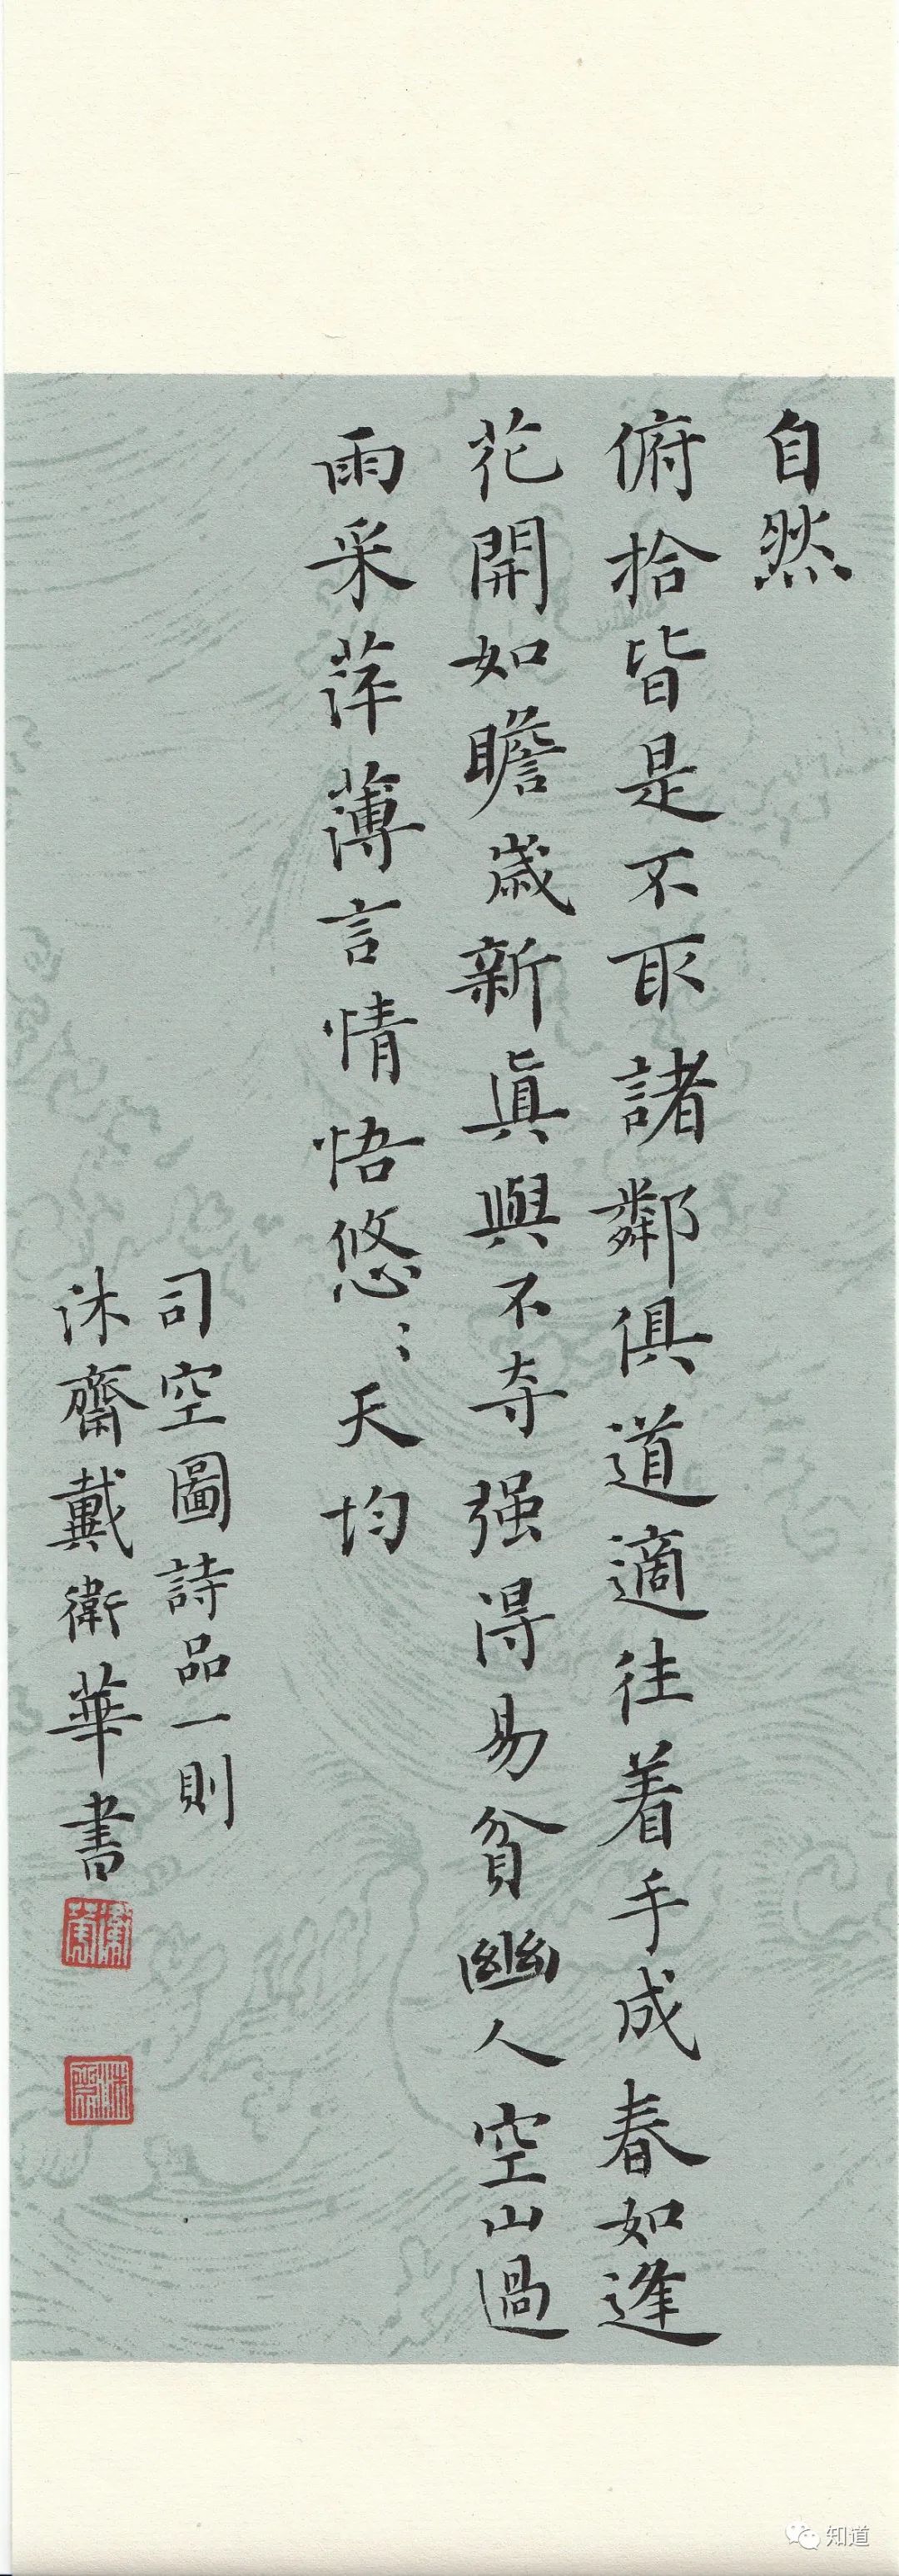 自然
俯拾皆是不取諸鄰俱道適往着手成春如逢
花開如瞻歲新眞與不夺强得易貧幽人空山過
雨采萍薄言情悟悠〻天均
司空圖詩品一則
沐齋戴衛華書
知道